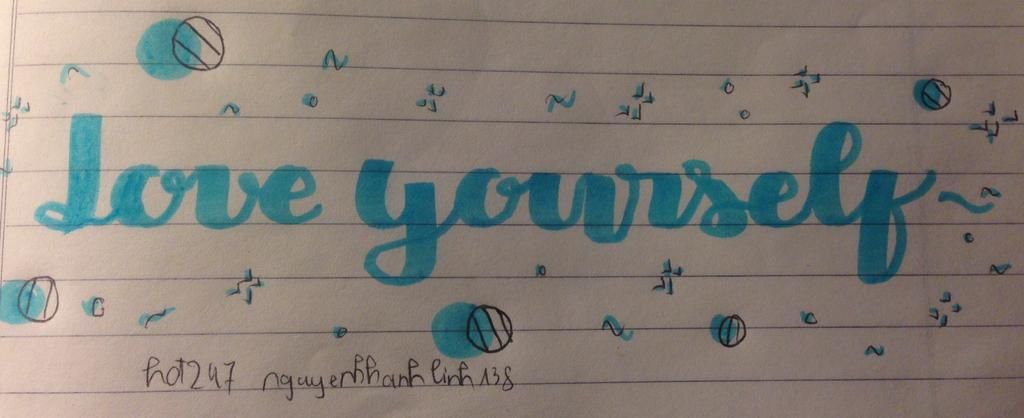 Love yourself
hot247 nguyenhhanhlinh138